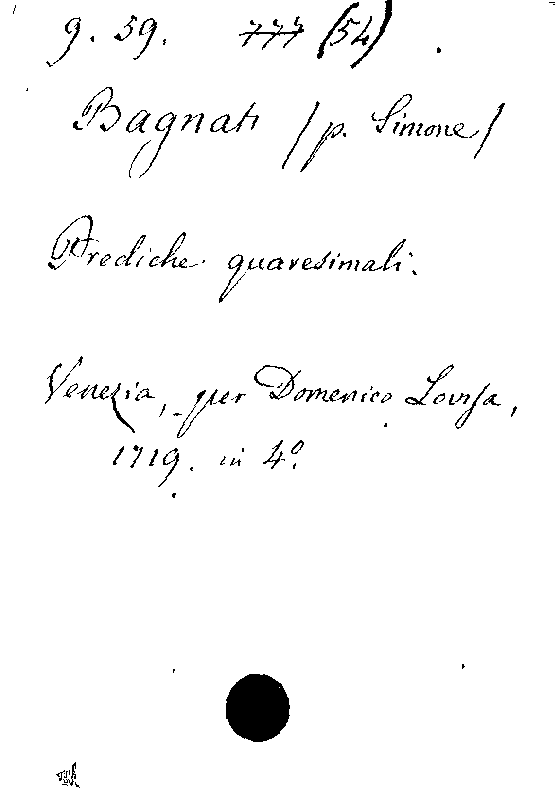 9. 59. 777 (54)
Bagnati (p. Simone)
Prediche quaresimali.
Venezia, per Domenico Lovisa,
1719. in 4º.